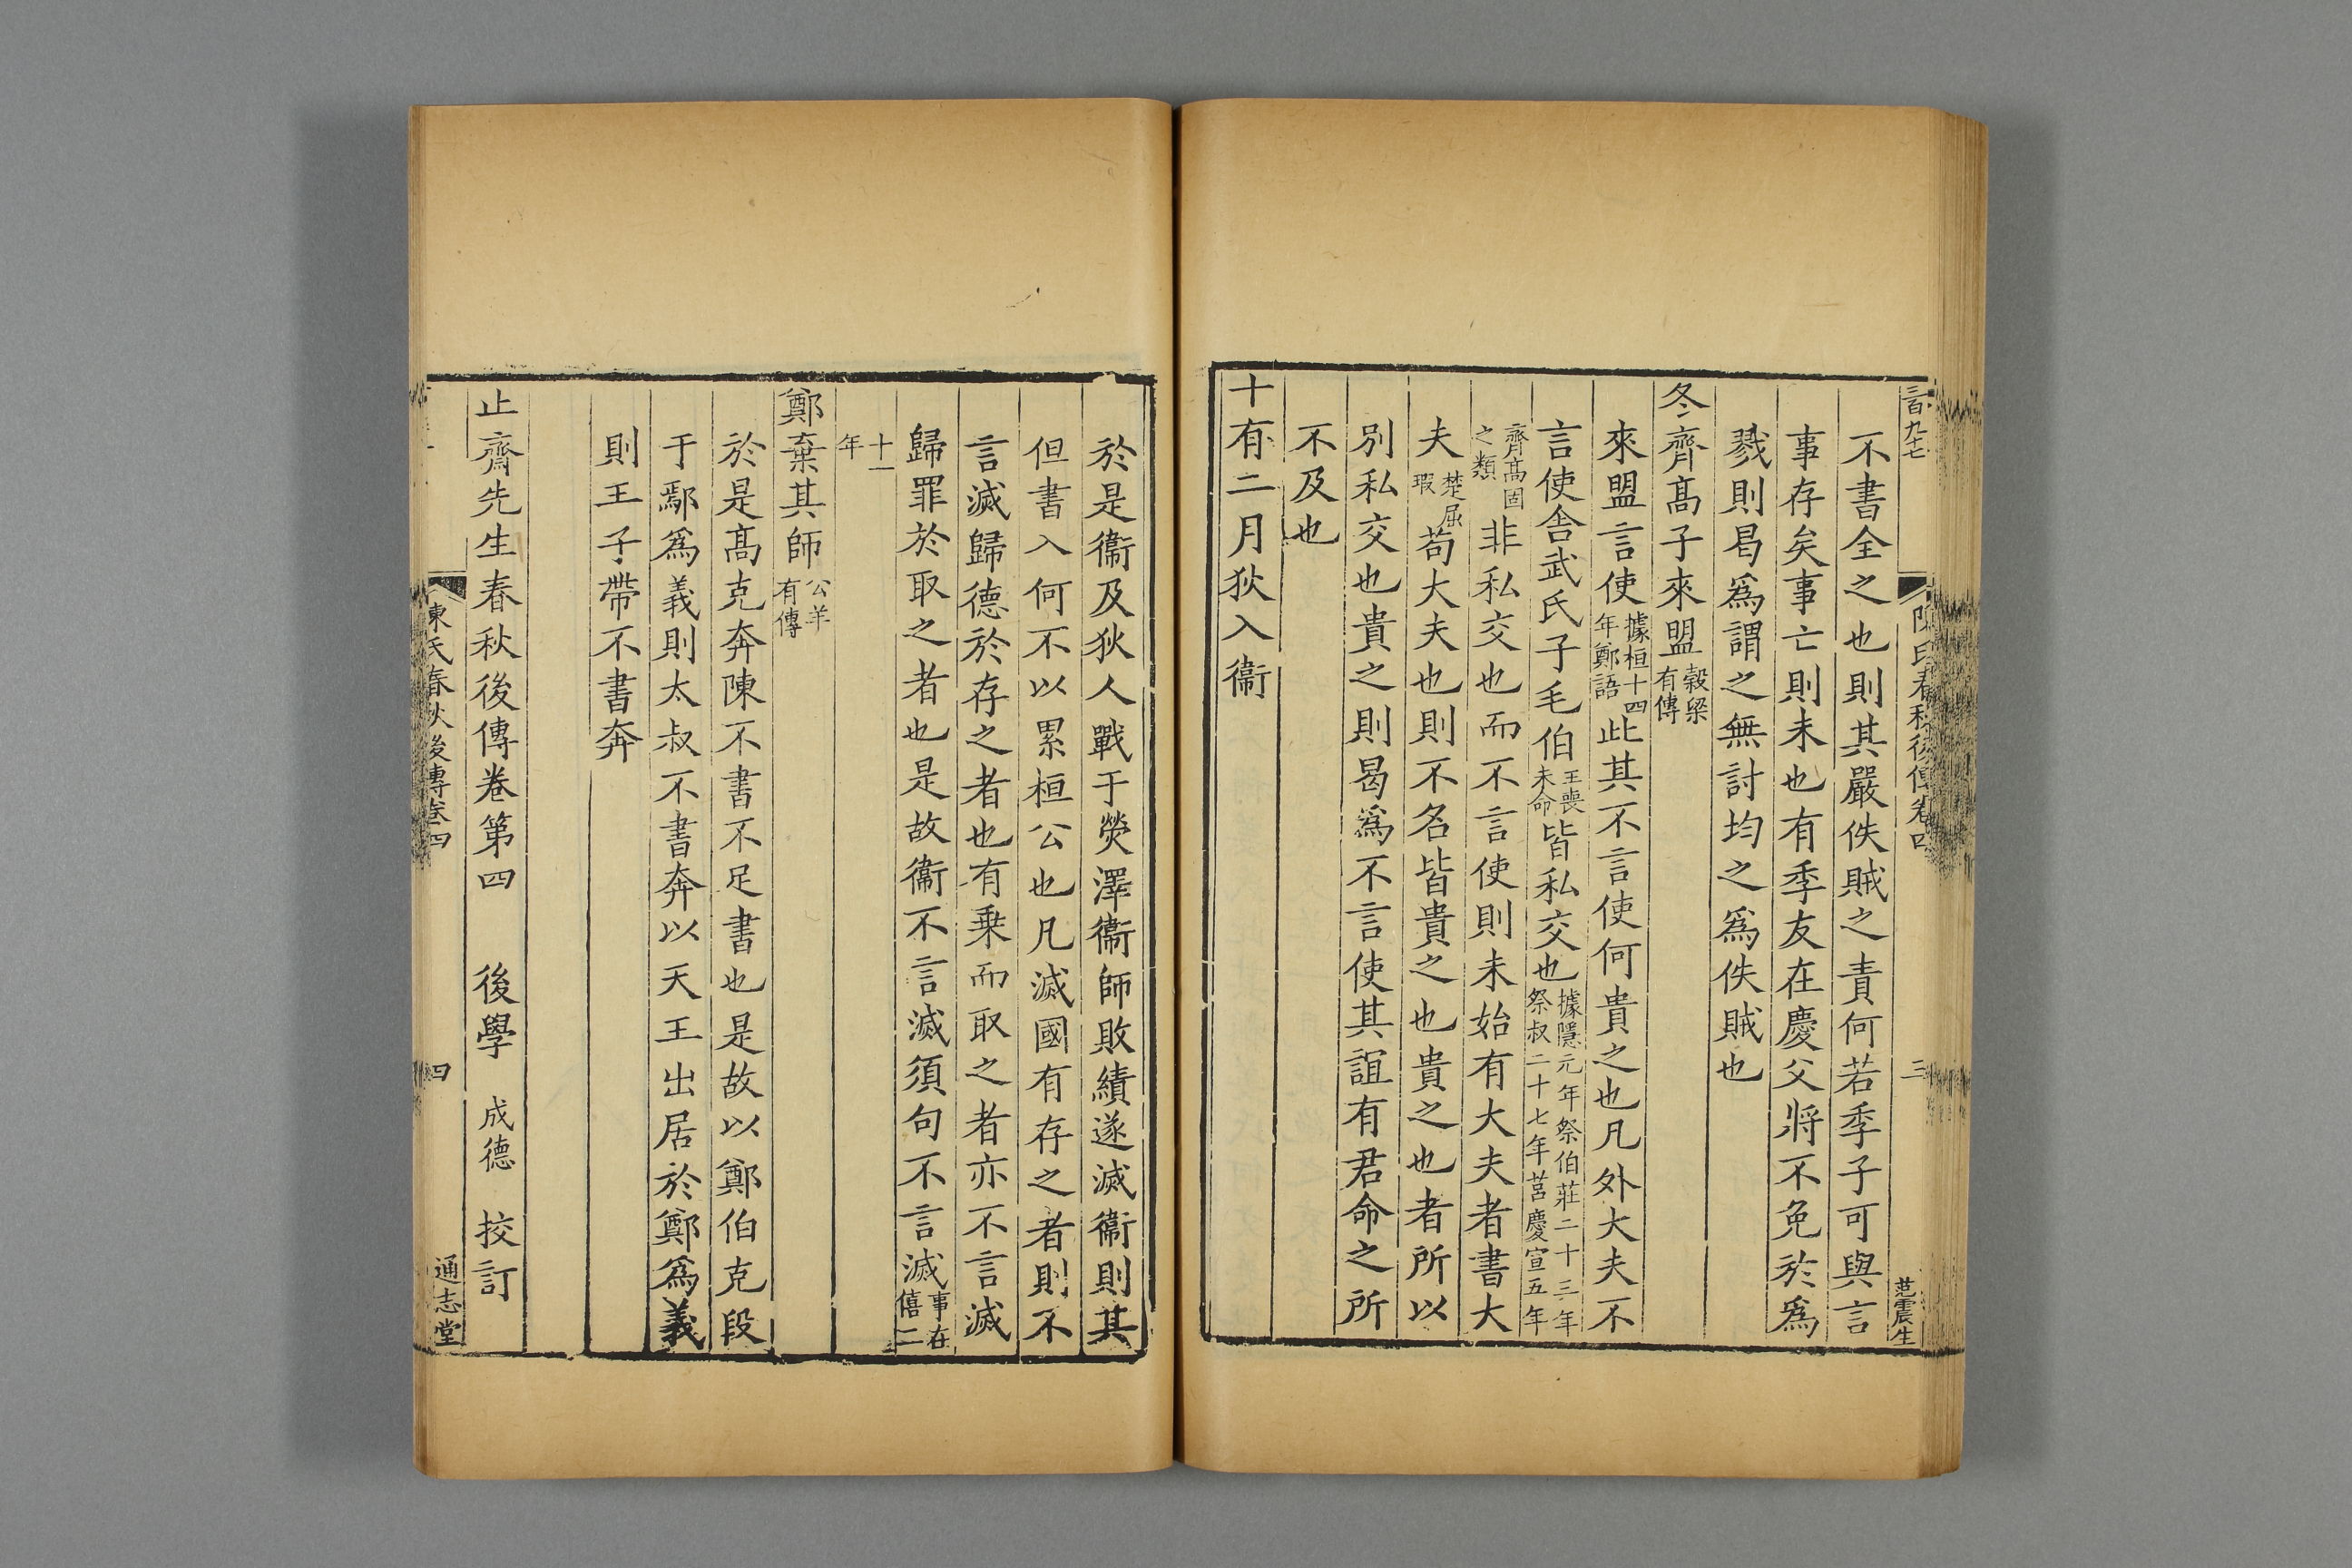 三百九十七
陳氏春秋後傳卷四
三
范震生
不書全之也則其嚴佚賊之責何若季子可與言
事存矣事亡則未也有季友在慶父將不免於爲
戮則曷爲謂之無討均之爲佚賊也
冬齊髙子來盟穀梁有傳
來盟言使據桓十四年鄭語此其不言使何貴之也凡外大夫不
言使舍武氏子毛伯王喪未命皆私交也據隱元年祭伯莊二十三年祭叔二十七年莒慶宣五年
齊髙固之類非私交也而不言使則未始有大夫者書大
夫楚屈瑕苟大夫也則不名皆貴之也貴之也者所以
别私交也貴之則曷爲不言使其誼有君命之所
不及也
十有二月狄入衞
於是衞及狄人戰于熒澤衞師敗績遂滅衞則其
但書入何不以累桓公也凡滅國有存之者則不
言滅歸德於存之者也有乗而取之者亦不言滅
歸罪於取之者也是故衞不言滅須句不言滅事在僖二
十一年
鄭棄其師公羊有傳
於是髙克奔陳不書不足書也是故以鄭伯克段
于鄢爲義則太叔不書奔以天王出居於鄭爲義
則王子帶不書奔
止齋先生春秋後傳卷第四 後學 成德 挍訂
陳氏春秋後傳卷四
四
通志堂